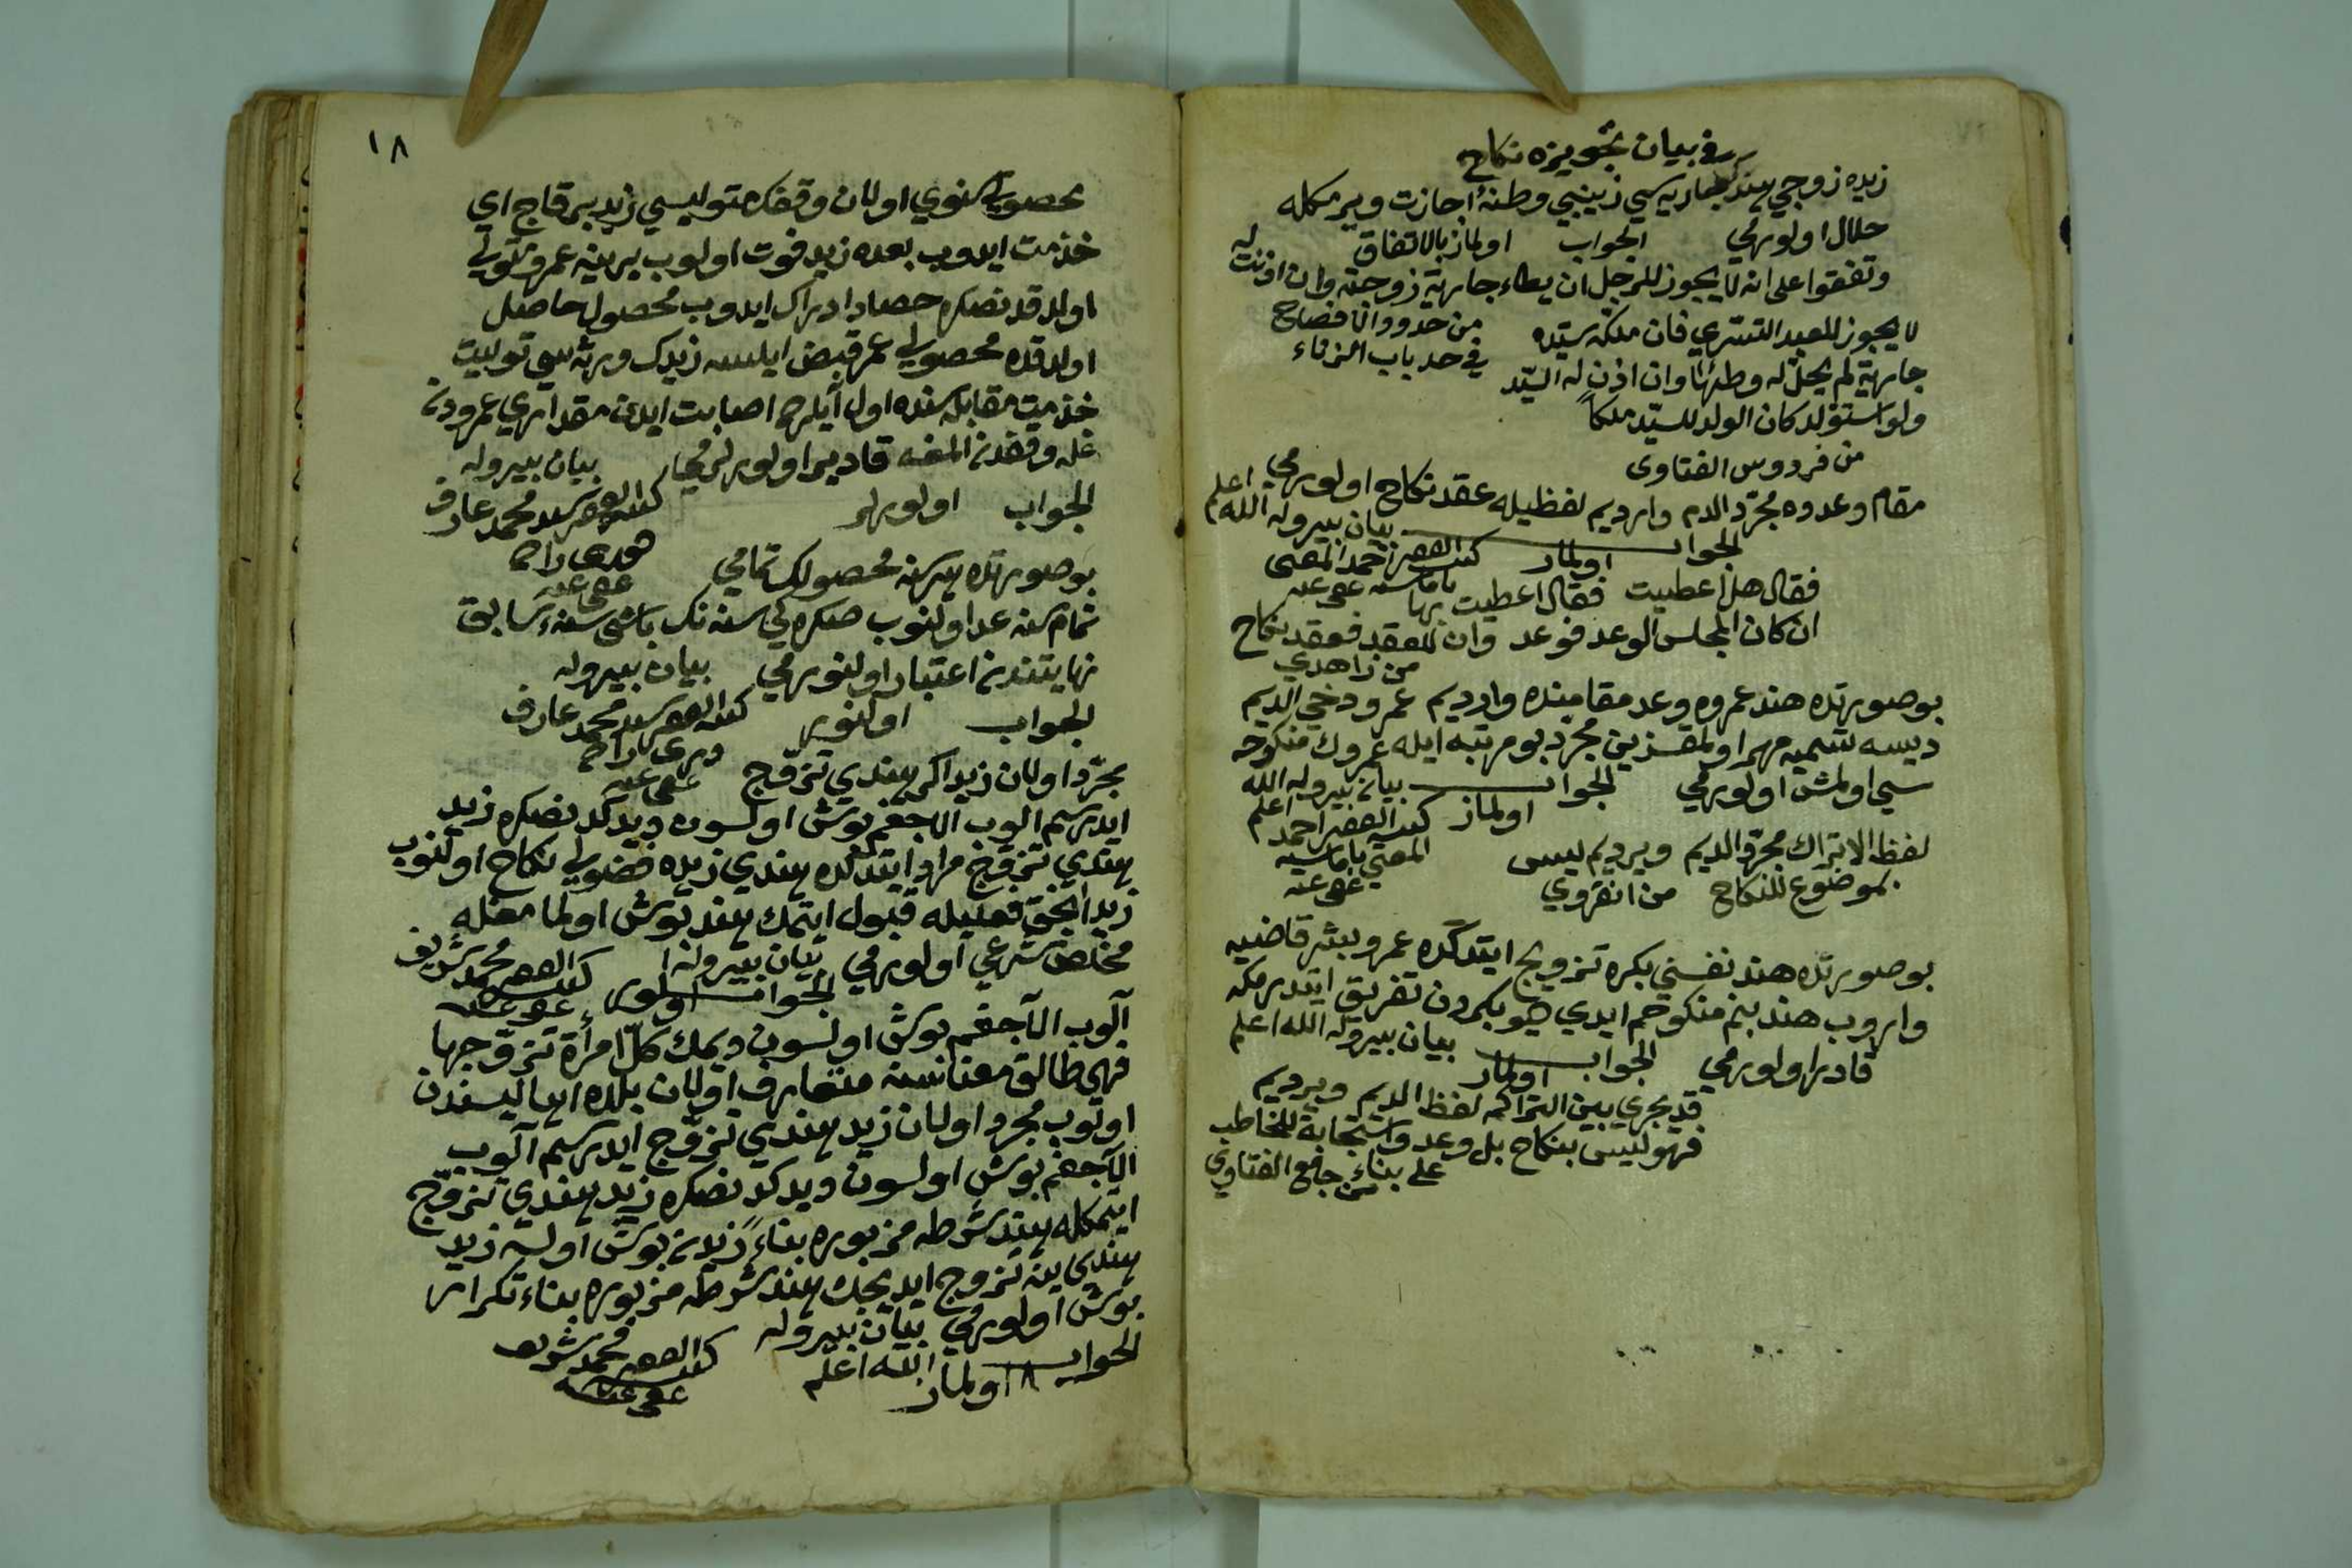 في بيان تجويزه نكاح
زيده زوجي هند جاريه سي زينبي وطئه اجازت ويرمكله
حلال اولورمي الجواب اولماز بالاتفاق
وتفقوا على انه لا يجوز للرجل ان يطاء جارية زوجته وان اذنت له
من حدود
لا يجوز للعبد التسري فان ملكه سيده
في حد باب الزناء
جارية لم يحل له وطئها وان اذن له السيد
ولو استولد كان الولد للسيد ملكاً
من فردوس الفتاوى
مقام وعدوه مجرد الدم وارديم لفظيله عقد نكاح اولورمي
بيان بيروله الله اعلم
الجواب اولماز كتبه الفقير احمد المفتى
باماسيه عفي عنه
فقال هل اعطيت فقال اعطيت
ان كان المجلس الوعد فوعد وان للعقد فعقد نكاح
من زاهدي
بو صورتده هند عمروه وعد مقامنده وارديم عمرو دخي الديم
ديسه تسميه مهر اولمقسزين مجرد بو مرتبه ايله عمروك منكوحه
سي اولمش اولورمي الجواب بيان بيروله الله اعلم
اولماز كتبه الفقير احمد
المفتي باماسيه
عفي عنه
لفظ الاتراك مجرد الديم ويرديم ليس
بموضوع للنكاح من انقروي
بو صورتده هند نفسني بكره تزويج ايتدكده عمرو بشر قاضيه
واروب هند بنم منكوحم ايدي ديو بكردن تفريق ايتدرمكه
قادر اولورمي الجواب بيان بيروله الله اعلم
اولماز
قد يجري بين التراكمه لفظ الديم ويرديم
فهو ليس بنكاح بل وعد واستجابة للخاطب
على بناء من جامع الفتاوي
١٨
محصولي سنوي اولان وقفك متوليسي زيد بر قاج اي
خدمت ايدوب بعده زيد فوت اولوب يرينه عمرو متولي
اولدقدنصكره حصاد ادراك ايدوب محصول حاصل
اولدقده محصولي عمر قبض ايلسه زيدك ورثه سي توليت
خدمت مقابله سنده اول ايلره اصابت ايدن مقداري عمرودن
غله وقفدن المغه قادر اولورلرمي بيان بيروله
الجواب اولورلر كتبه الفقير سيد محمد عارف
عفي عنه
بو صورتده هر سنه محصولك تمامي
تمام سنه عد اولنوب صكره كي سنه نك باشي سنه سابق
نهايتندن اعتبار اولنورمي بيان بيروله
الجواب اولنور كتبه الفقير سيد محمد عارف
عفي عنه
مجرد اولان زيد اكر هندي تزوج
ايدرسم الوب الاجغم بوش اولسون ديدكدنصكره زيد
هندي تزوج مراد ايتدكده هندي زيده فضولي نكاح اولنوب
زيد انجق فعليله قبول ايتمك هند بوش اولمامغله
مخلص شرعي اولورمي بيان بيروله
الجواب اولور كتبه الفقير محمد شريف
عفي عنه
آلوب الآجغم بوش اولسون ديمك كل امرأة تزوجها
فهي طالق معناسنه متعارف اولان بلده اهاليسندن
اولوب مجرد اولان زيد هندي تزوج ايدرسم آلوب
الآجغم بوش اولسون ديدكدنصكره زيد هندي تزوج
ايتمكله هند شرطه مزبوره بناءً زيددن بوش اولسه زيد
هندي ينه تزوج ايديجك هند شرطه مزبوره بناء تكرار
بوش اولورمي بيان بيروله
الجواب اولماز الله اعلم كتبه الفقير محمد شريف
عفي عنه
١٨